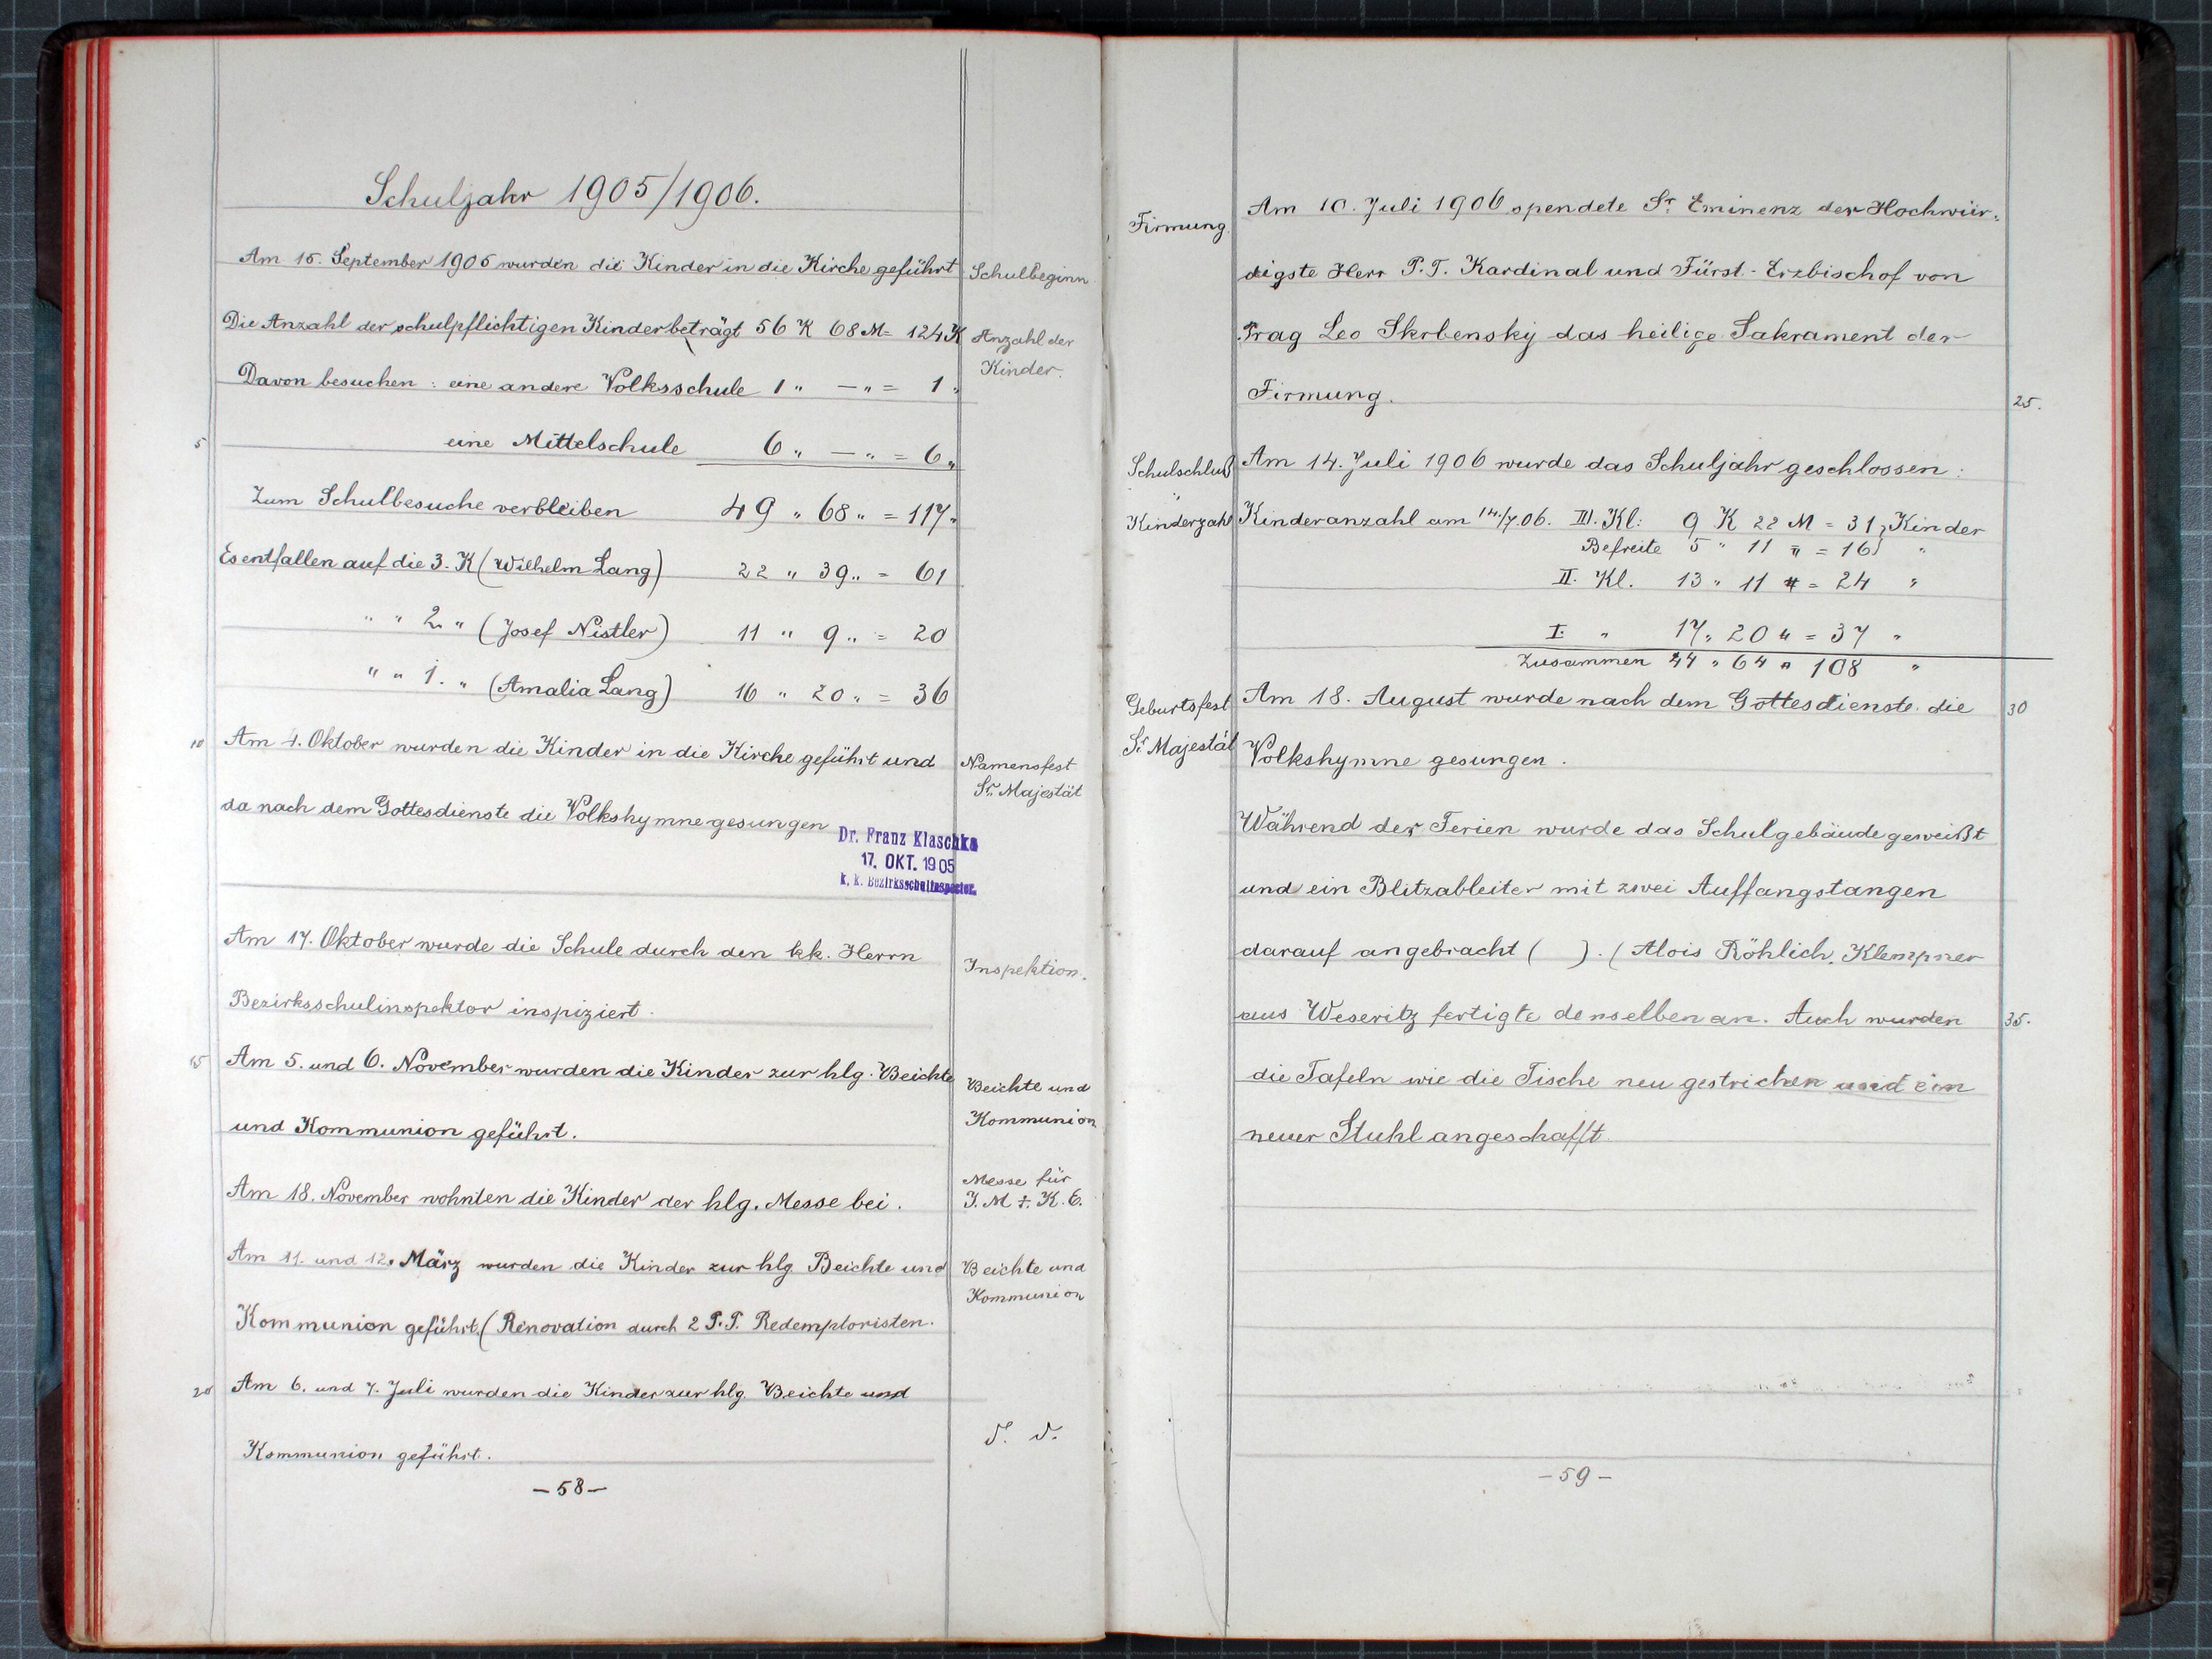 Schuljahr 1905/1906.
Am 15. September 1905 wurden die Kinder in die Kirche geführt
Schulbeginn
Die Anzahl der schulpflichtigen Kinder beträgt 56 K 68 M = 124 K
Anzahl der
Kinder.
Davon besuchen: eine andere Volksschule 1 " — " = 1 "
5
eine Mittelschule 6 " — " = 6 "
Zum Schulbesuche verbleiben 49 " 68 " = 117 "
Es entfallen auf die 3. K (Wilhelm Lang) 22 " 39 " = 61
" " 2. " (Josef Nistler) 11 " 9 " = 20
" " 1. " (Amalia Lang) 16 " 20 " = 36
10
Am 4. Oktober wurden die Kinder in die Kirche geführt und
Namensfest
Sr. Majestät
da nach dem Gottesdienste die Volkshymne gesungen
Dr. Franz Klaschka
17. OKT. 1905
k. k. Bezirksschulinspector.
Am 17. Oktober wurde die Schule durch den kk. Herrn
Inspektion.
Bezirksschulinspektor inspiziert.
15
Am 5. und 6. November wurden die Kinder zur hlg. Beichte
Beichte und
Kommunion
und Kommunion geführt.
Messe für
I. M †. K. E.
Am 18. November wohnten die Kinder der hlg. Messe bei.
Am 11. und 12. März wurden die Kinder zur hlg Beichte und
Beichte und
Kommunion
Kommunion geführt. (Renovation durch 2 P.T. Redemptoristen.
20
Am 6. und 7. Juli wurden die Kinder zur hlg. Beichte und
Kommunion geführt.
– 58 –
Firmung.
Am 10. Juli 1906 spendete Sr. Eminenz der Hochwür-
digste Herr P.T. Kardinal und Fürst-Erzbischof von
Prag Leo Skrbensky das heilige Sakrament der
Firmung.
25.
Schulschluß
Am 14. Juli 1906 wurde das Schuljahr geschlossen:
"
Kinderzahl
Kinderanzahl am 14./7. 06. III. Kl: 9 K 22 M = 31 Kinder
Befreite 5 " 11 " = 16 "
II. Kl. 13 " 11 " = 24 "
I. " 17 " 20 " = 37 "
Zusammen 44 " 64 " 108 "
Geburtsfest
Sr. Majestät
Am 18. August wurde nach dem Gottesdienste die
30
Volkshymne gesungen.
Während der Ferien wurde das Schulgebäude geweißt
und ein Blitzableiter mit zwei Auffangstangen
darauf angebracht ( ). (Alois Röhlich, Klempner
aus Weseritz fertigte denselben an. Auch wurden
35.
die Tafeln wie die Tische neu gestrichen und ein
neuer Stuhl angeschafft.
– 59 –